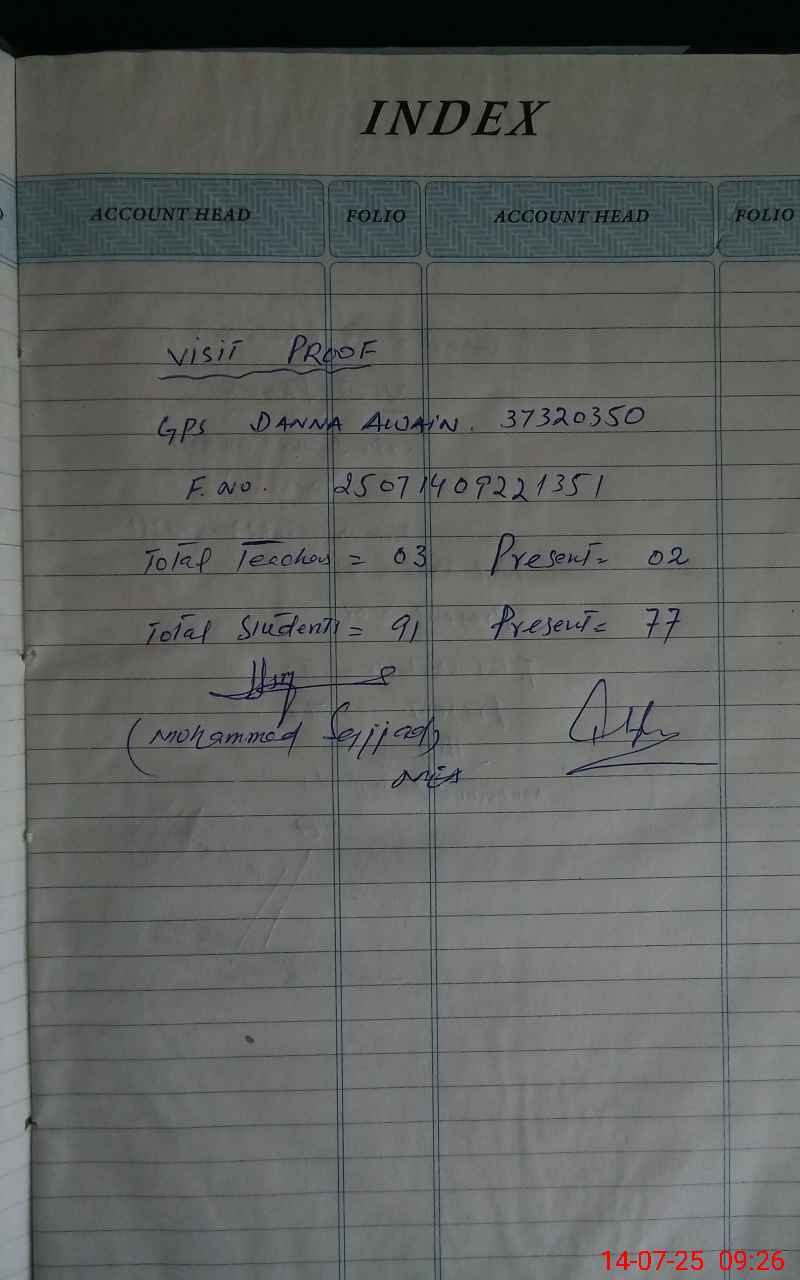 INDEX
ACCOUNT HEAD FOLIO ACCOUNT HEAD FOLIO
Visit PROOF
GPS DANNA AWAIN. 37320350
F. No. 25071409221351
Total Teachers = 03 Present= 02
Total Students = 91 Present= 77
(Mohammad Sajjad)
14-07-25 09:26